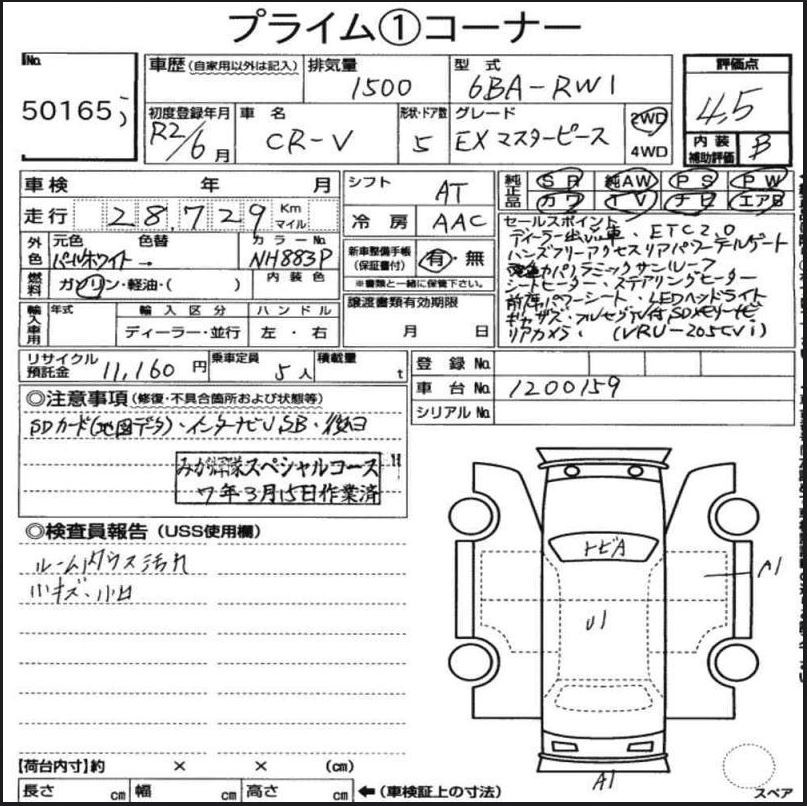 プライム①コーナー
No. 50165
車歴(自家用以外は記入)
排気量 1500
型式 6BA-RW1
評価点 4.5
初度登録年月 R2/6月
車名 CR-V
形状・ドア数 5
グレード EX マスターピース
2WD
4WD
内装補助評価 B
車検 年 月
走行 28,729 Km マイル
外色 元色 パールホワイト 色替 → カラーNo. NH883P
燃料 ガソリン・軽油・( ) 内装色
輸入車用 年式 輸入区分 ディーラー・並行 ハンドル 左・右
シフト AT
冷房 AAC
新車整備手帳(保証書付) 有・無
※書類と一緒に保管下さい。
譲渡書類有効期限 月 日
純正品 SR 純AW PS PW
カワ TV ナビ エアB
セールスポイント
ディーラー 車、ETC2.0
ハンズフリーアクセスリアパワーテールゲート
パノラミックサンルーフ
シートヒーター、ステアリングヒーター
パワーシート、LEDヘッドライト
リアカメラ、(VRU-205CVi)
リサイクル預託金 11,160円
乗車定員 5人
積載量 t
登録No.
車台No. 1200159
シリアルNo.
◎注意事項(修復・不具合箇所および状態等)
SDカード(地図データ)・インターナビUSB・後日
みがき隊スペシャルコース
7年3月15日作業済
◎検査員報告(USS使用欄)
ルーム内ウス汚れ
小キズ、小凹
トビA
A1
U1
A1
【荷台内寸】約 × × (cm)
長さ cm 幅 cm 高さ cm ←(車検証上の寸法)
スペア